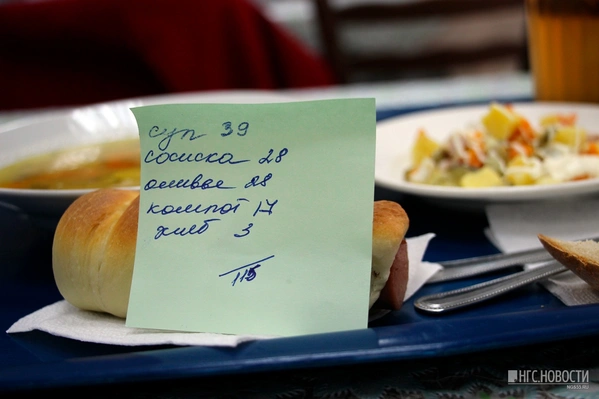 суп 39
сосиска 28
оливье 28
компот 17
хлеб 3
115
НГС.НОВОСТИ
NGS.RU